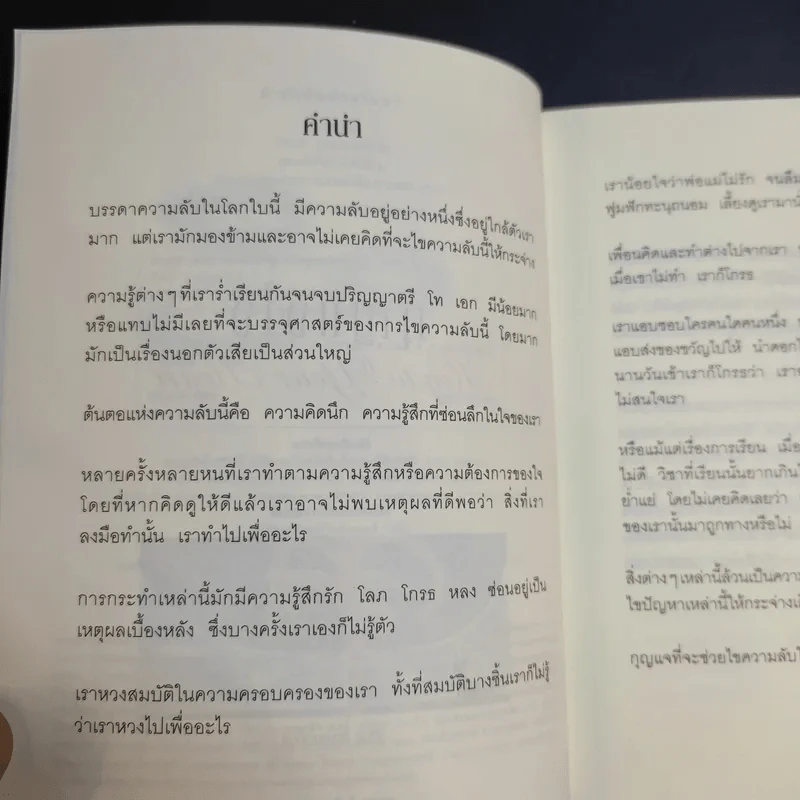 คำนำ
บรรดาความลับในโลกใบนี้ มีความลับอยู่อย่างหนึ่งซึ่งอยู่ใกล้ตัวเรา
มาก แต่เรามักมองข้ามและอาจไม่เคยคิดที่จะไขความลับนี้ให้กระจ่าง
ความรู้ต่างๆที่เราร่ำเรียนกันจนจบปริญญาตรี โท เอก มีน้อยมาก
หรือแทบไม่มีเลยที่จะบรรจุศาสตร์ของการไขความลับนี้ โดยมาก
มักเป็นเรื่องนอกตัวเสียเป็นส่วนใหญ่
ต้นตอแห่งความลับนี้คือ ความคิดนึก ความรู้สึกที่ซ่อนลึกในใจของเรา
หลายครั้งหลายหนที่เราทำตามความรู้สึกหรือความต้องการของใจ
โดยที่หากคิดดูให้ดีแล้วเราอาจไม่พบเหตุผลที่ดีพอว่า สิ่งที่เรา
ลงมือทำนั้น เราทำไปเพื่ออะไร
การกระทำเหล่านี้มักมีความรู้สึกรัก โลภ โกรธ หลง ซ่อนอยู่เป็น
เหตุผลเบื้องหลัง ซึ่งบางครั้งเราเองก็ไม่รู้ตัว
เราหวงสมบัติในความครอบครองของเรา ทั้งที่สมบัติบางชิ้นเราก็ไม่รู้
ว่าเราหวงไปเพื่ออะไร
เราน้อยใจว่าพ่อแม่ไม่รัก จนลืม
ฟูมฟักทะนุถนอม เลี้ยงดูเรามา
เพื่อนคิดและทำต่างไปจากเรา
เมื่อเขาไม่ทำ เราก็โกรธ
เราแอบชอบใครคนใดคนหนึ่ง
แอบส่งของขวัญไปให้ นำดอกไ
นานวันเข้าเราก็โกรธว่า
ไม่สนใจเรา
หรือแม้แต่เรื่องการเรียน
ไม่ดี วิชาที่เรียนนั้นยากเกิน
ย่ำแย่ โดยไม่เคยคิดเลยว่า
ของเรานั้นมาถูกทางหรือไม่
สิ่งต่างๆเหล่านี้ล้วนเป็นความ
ไขปัญหาเหล่านี้ให้กระจ่าง
กุญแจที่จะช่วยไขความลับ